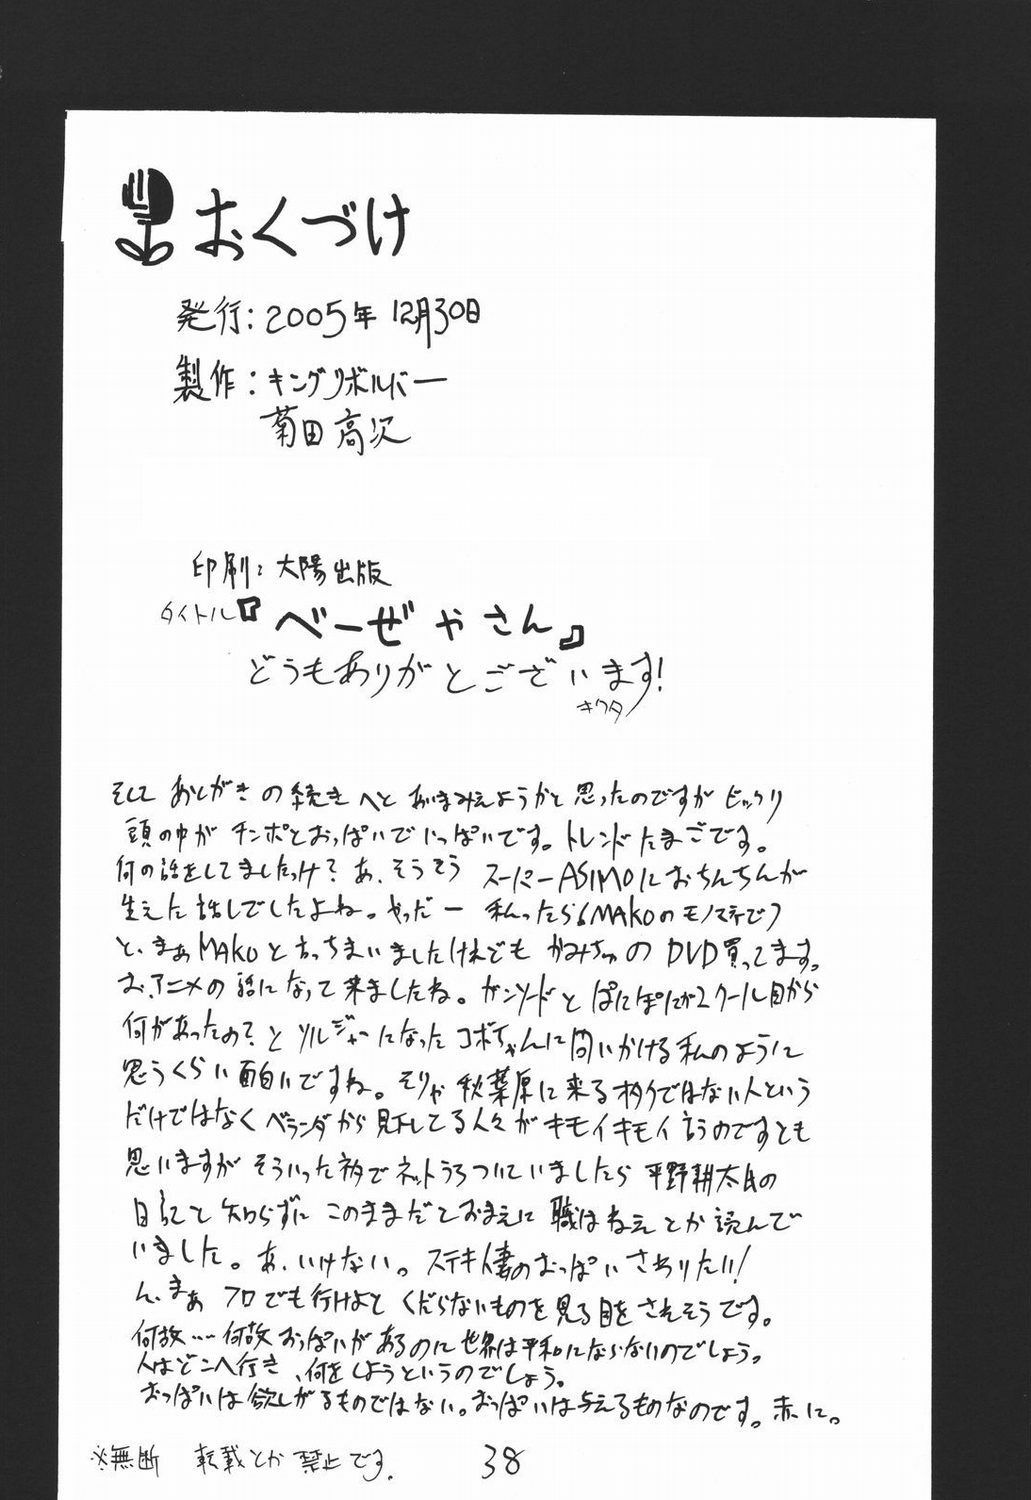 おくづけ
発行：2005年12月30日
製作：キングリボルバー
菊田高次
印刷：大陽出版
タイトル『べーぜやさん』
どうもありがとございます！
キクタ
そして あとがきの続きへと あいまみえようかと思ったのですが ビックリ
頭の中がチンポとおっぱいでいっぱいです。トレンドたまごです。
何の話をしてましたっけ？あ、そうそう スーパーASIMOにおちんちんが
生えた話しでしたよね。やっだー 私ったら MAKOのモノマネで
と、まぁMAKOと言っちまいましたけれども かみちゅのDVD買ってます。
お、アニメの話になって来ましたね。ガンソードと ぱにぽにが2クール目から
何があったの？と ソルジャーになったコボちゃんに問いかける私のように
思うくらい面白いですね。そりゃ秋葉原に来るオタクではない人という
だけではなくベランダから見下してる人々がキモイキモイ言うのですとも
思いますが そういった訳でネットうろついていましたら 平野耕太氏の
日記と知らずに このままだとおまえに職はねぇとか読んで
いました。あ、いけない。ステキ人妻のおっぱいさわりたい！
ん、まぁ フロでも行けよと くだらないものを見る目をされそうです。
何故…何故おっぱいがあるのに世界は平和にならないのでしょう。
人はどこへ行き、何をしようというのでしょう。
おっぱいは欲しがるものではない。おっぱいは与えるものなのです。赤に。
※無断 転載とか禁止です.
38